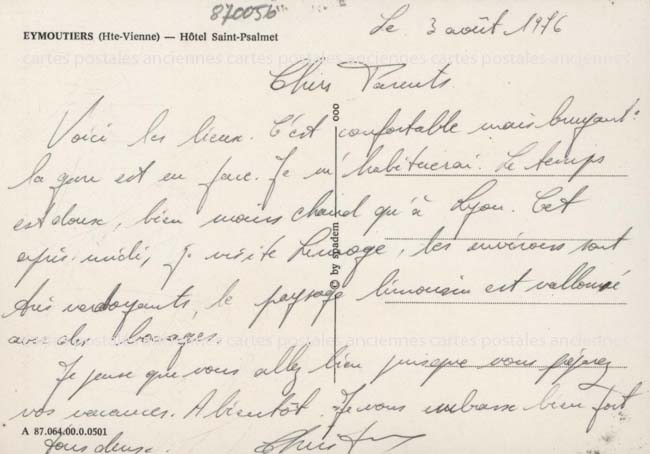 870056
EYMOUTIERS (Hte-Vienne) — Hôtel Saint-Psalmet
Le 3 août 1976
cartes postales anciennes cartes postales anciennes cartes postales anciennes
Chers Parents.
Voici les lieux. C'est confortable mais bruyant :
la gare est en face. Je m'habituerai. Le temps
est doux, bien moins chaud qu'à Lyon. Cet
après-midi, je visite Limoge, les environs sont
très verdoyants, le paysage limousin est vallonné
avec des bocages.
cartes postales anciennes cartes postales anciennes cartes postales anciennes
Je pense que vous allez bien puisque vous préparez
vos vacances. A bientôt. Je vous embrasse bien fort
A 87.064.00.0.0501
tous deux.
© by spadem
000